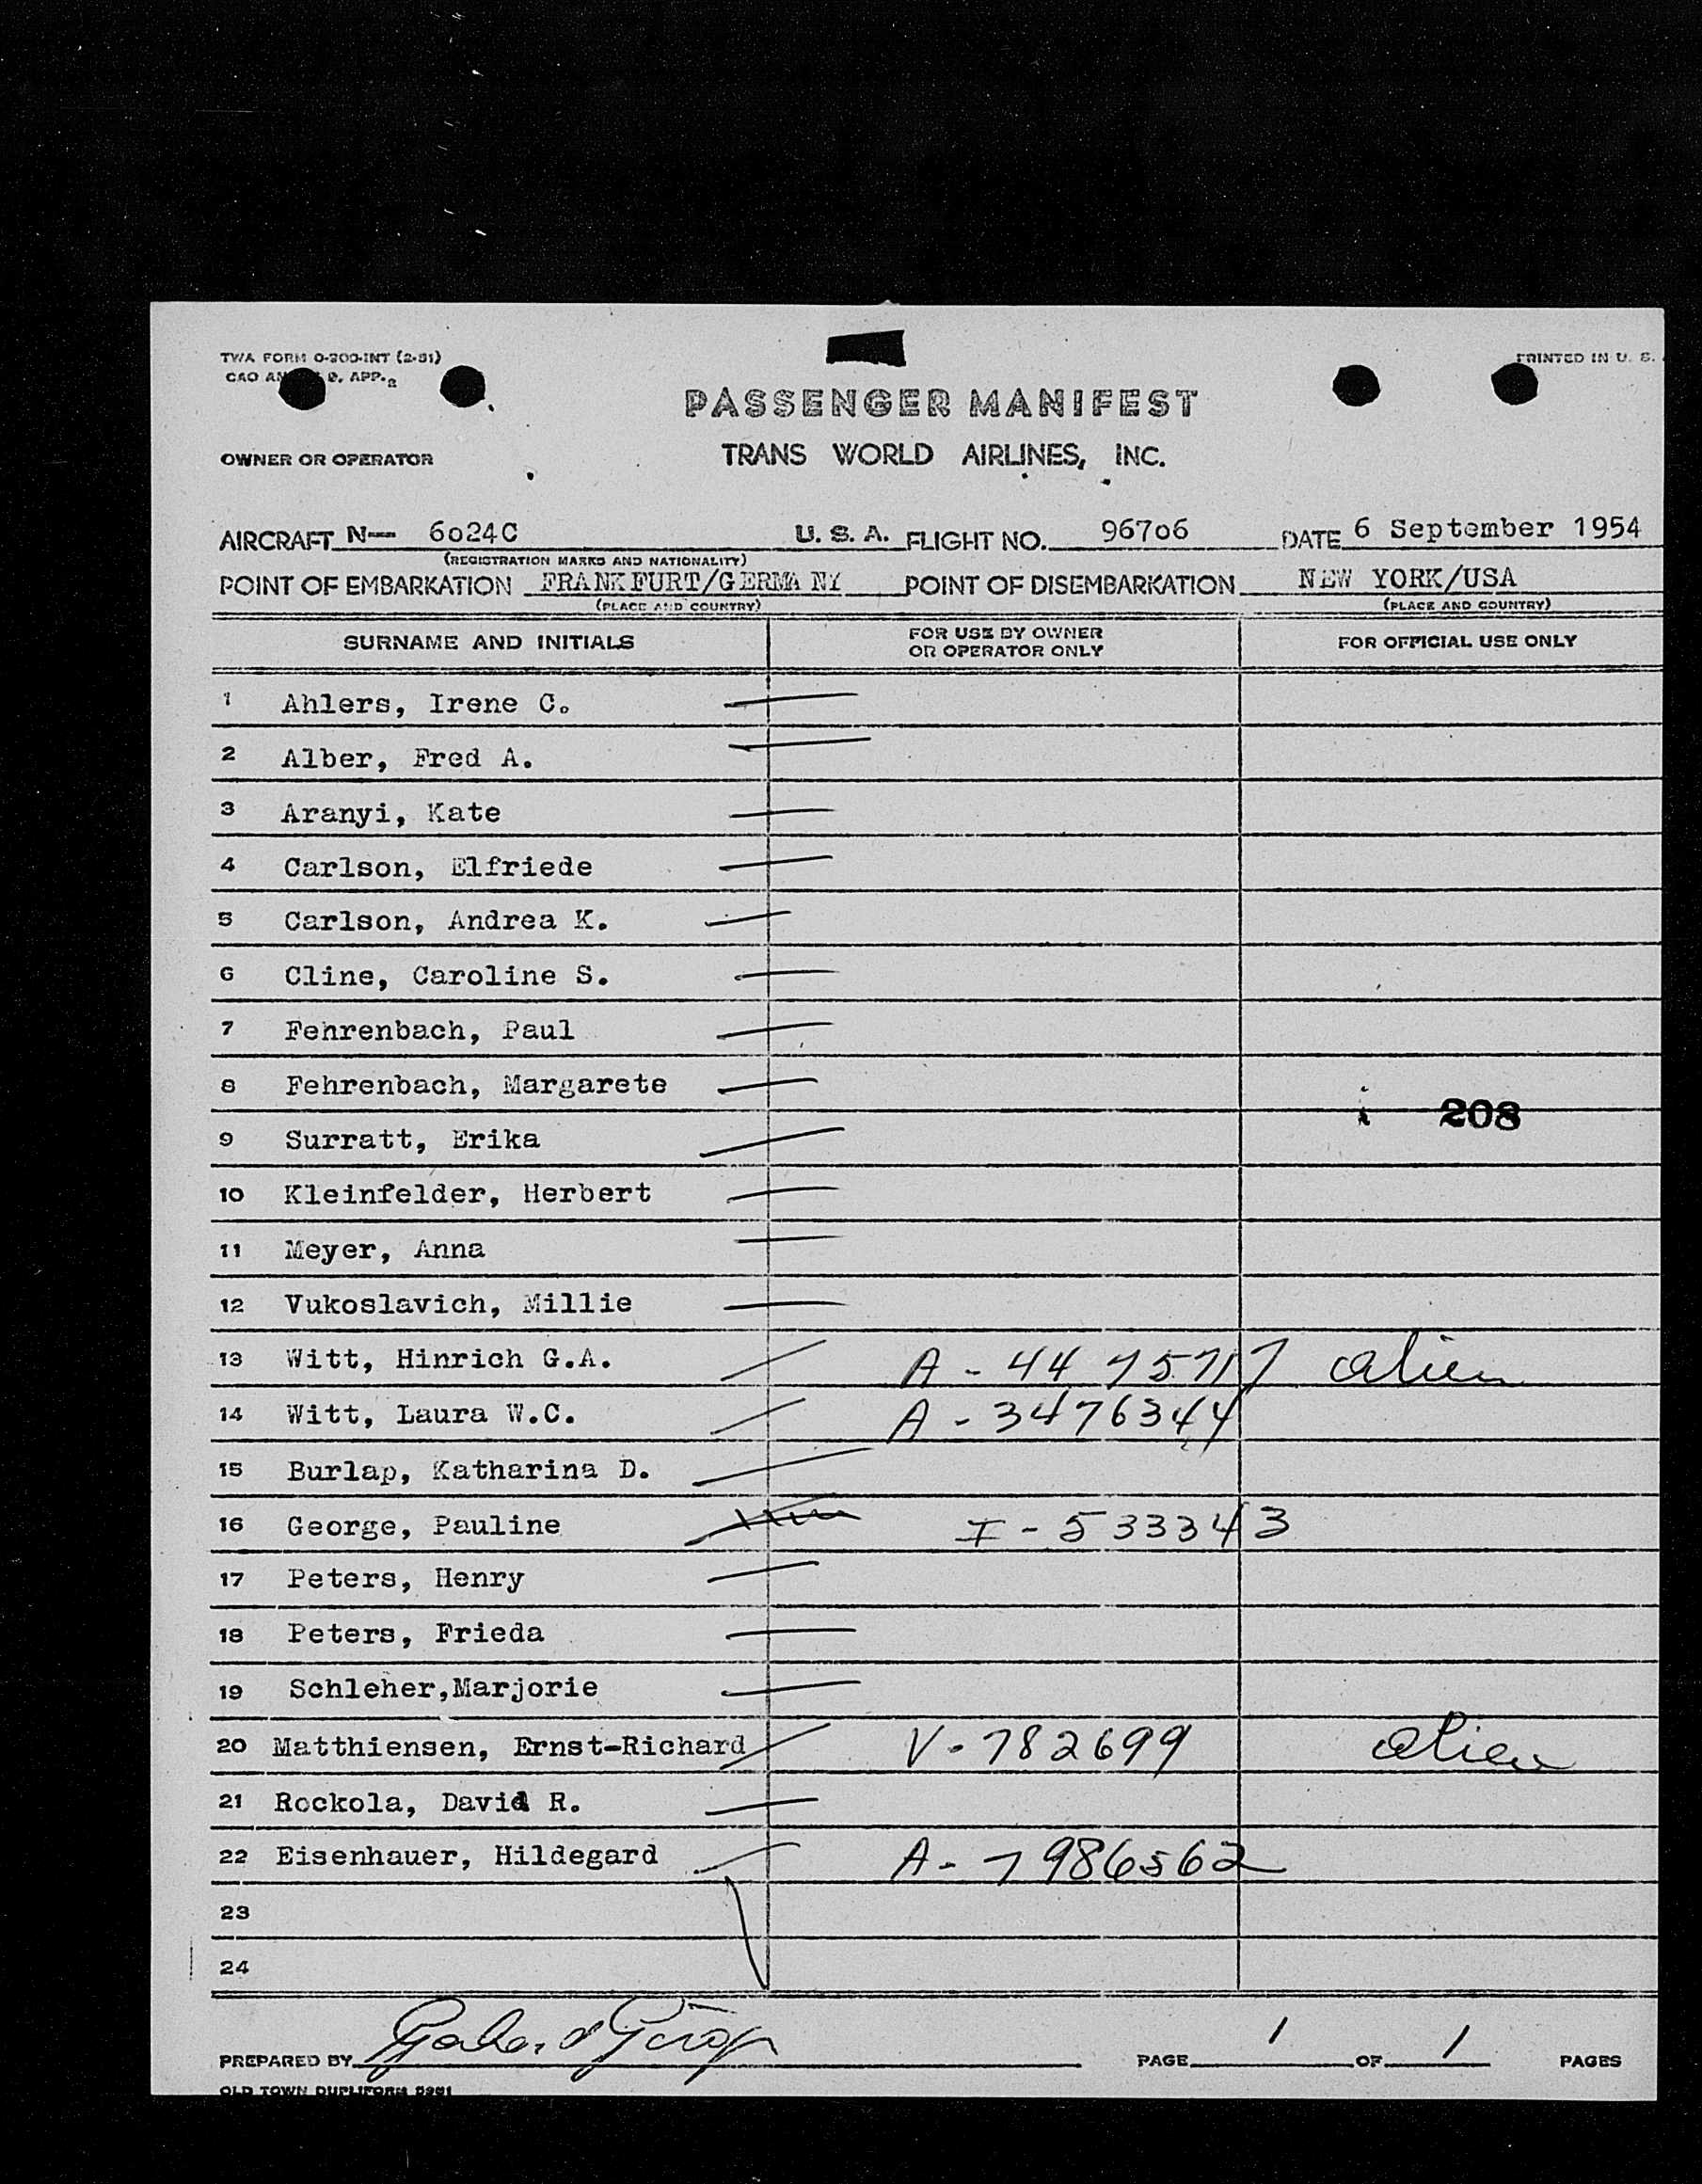 TWA FORM O-200-INT (2-51)
PRINTED IN U. S.
CAO 9, APP. 2
PASSENGER MANIFEST
OWNER OR OPERATOR
TRANS WORLD AIRLINES, INC.
AIRCRAFT N— 6o24C U. S. A. FLIGHT NO. 967o6 DATE 6 September 1954
(REGISTRATION MARKS AND NATIONALITY)
POINT OF EMBARKATION FRANKFURT/GERMANY POINT OF DISEMBARKATION NEW YORK/USA
(PLACE AND COUNTRY) (PLACE AND COUNTRY)
SURNAME AND INITIALS FOR USE BY OWNER OR OPERATOR ONLY FOR OFFICIAL USE ONLY
1 Ahlers, Irene C.
2 Alber, Fred A.
3 Aranyi, Kate
4 Carlson, Elfriede
5 Carlson, Andrea K.
6 Cline, Caroline S.
7 Fehrenbach, Paul
8 Fehrenbach, Margarete
208
9 Surratt, Erika
10 Kleinfelder, Herbert
11 Meyer, Anna
12 Vukoslavich, Millie
13 Witt, Hinrich G.A. A - 44 75717 alien
14 Witt, Laura W.C. A - 3476344
15 Burlap, Katharina D.
16 George, Pauline I - 533343
17 Peters, Henry
18 Peters, Frieda
19 Schleher,Marjorie
20 Matthiensen, Ernst-Richard V - 782699 alien
21 Rockola, David R.
22 Eisenhauer, Hildegard A - 7986562
23
24
PREPARED BY PAGE 1 OF 1 PAGES
OLD TOWN DUPLIFORM